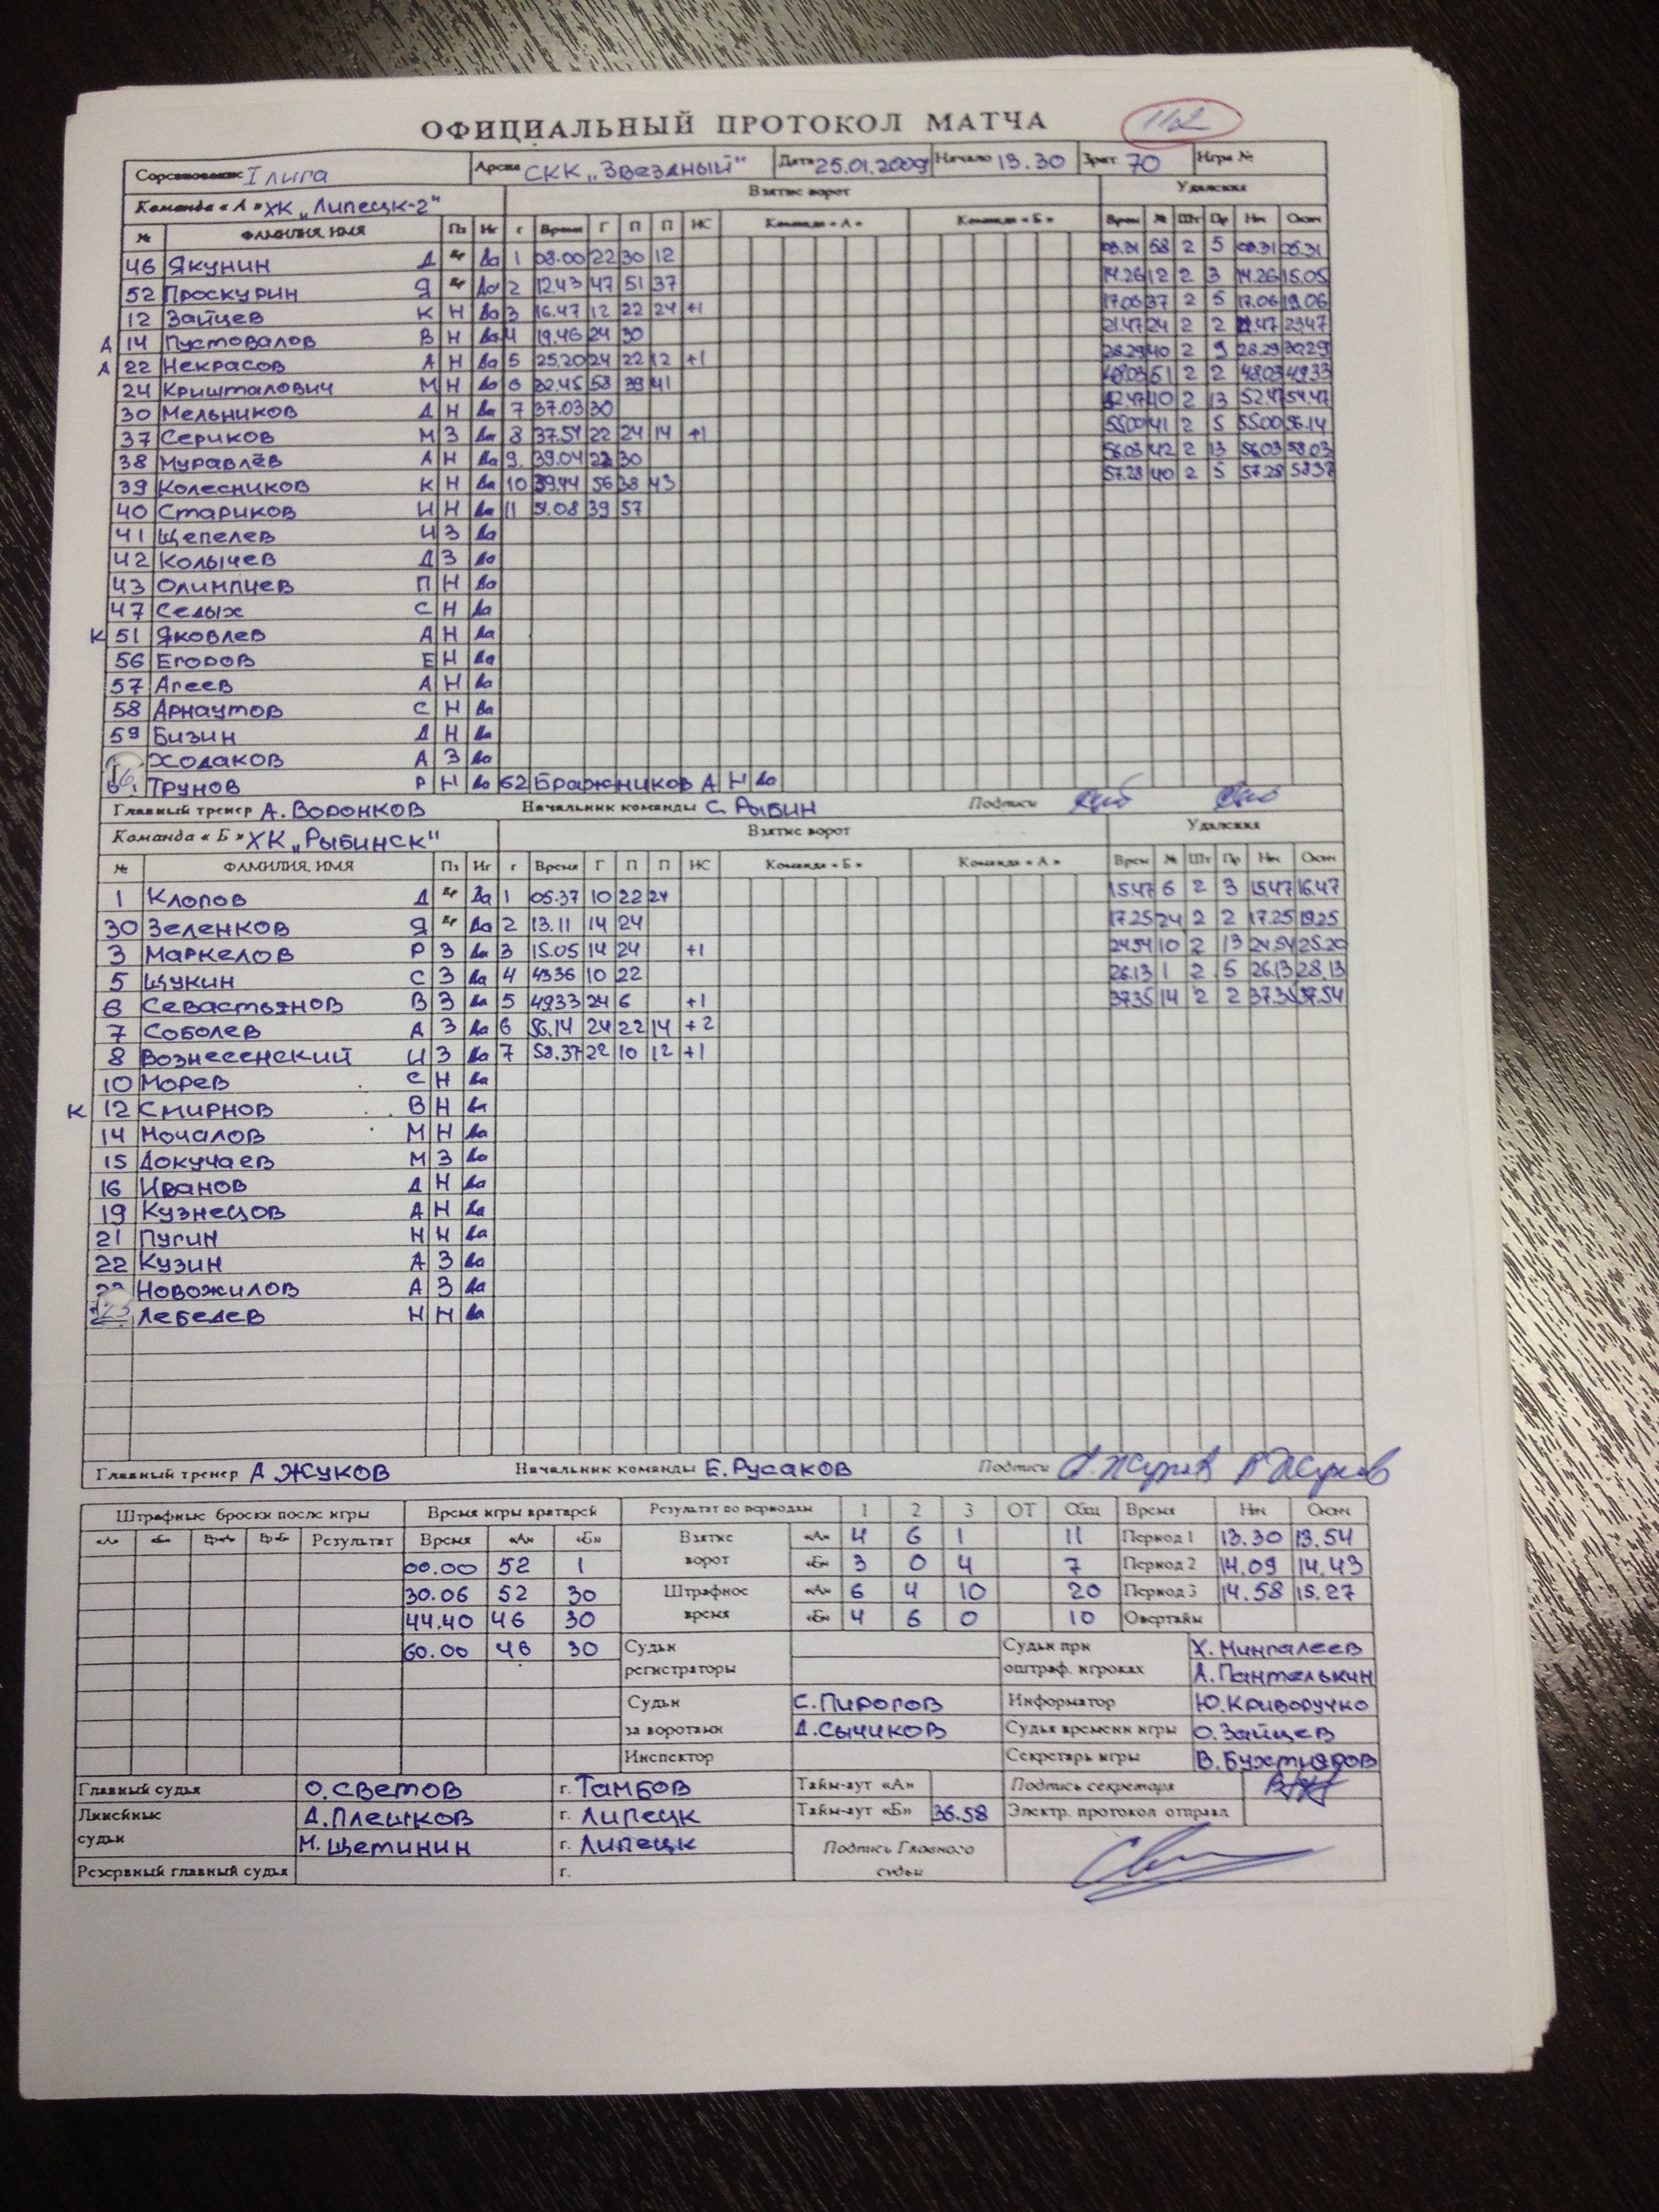 ОФИЦИАЛЬНЫЙ ПРОТОКОЛ МАТЧА 112
Соревнование I лига Арена СКК „Звездный" Дата 25.01.2009 Начало 13.30 Зрит. 70 Игра №
Команда «А» ХК „Липецк-2" Взятие ворот Удаления
№ ФАМИЛИЯ, ИМЯ Пз Иг г Время Г П П ИС Команда «А» Команда «Б» Время № Шт Пр Нач Оконч
46 Якунин Д Вр Да 1 08.00 22 30 12 03.31 58 2 5 03.31 05.31
52 Проскурин Я Вр Да 2 12.43 47 51 37 14.26 12 2 3 14.26 15.05
12 Зайцев К Н Да 3 16.47 12 22 24 +1 17.06 37 2 5 17.06 19.06
А 14 Пустовалов В Н Да 4 19.46 24 30 21.47 24 2 2 21.47 23.47
А 22 Некрасов А Н Да 5 25.20 24 22 12 +1 28.29 40 2 9 28.29 30.29
24 Кришталович М Н Да 6 32.45 58 39 41 48.03 51 2 2 48.03 49.33
30 Мельников Д Н Да 7 37.03 30 52.47 40 2 13 52.47 54.47
37 Сериков М З Да 8 37.54 22 24 14 +1 55.00 41 2 5 55.00 56.14
38 Муравлёв А Н Да 9. 39.04 22 30 56.03 42 2 13 56.03 58.03
39 Колесников К Н Да 10 39.44 56 38 43 57.28 40 2 5 57.28 58.37
40 Стариков И Н Да 11 51.08 39 57
41 Щепелев И З Да
42 Колычев Д З Да
43 Олимпиев П Н Да
47 Седых С Н Да
К 51 Яковлев А Н Да
56 Егоров Е Н Да
57 Агеев А Н Да
58 Арнаутов С Н Да
59 Бизин Д Н Да
Ходаков А З Да
Трунов Р Н Да 62 Бражников А Н Да
Главный тренер А. Воронков Начальник команды С. Рыбин Подписи
Команда «Б» ХК „Рыбинск" Взятие ворот Удаления
№ ФАМИЛИЯ, ИМЯ Пз Иг г Время Г П П ИС Команда «Б» Команда «А» Время № Шт Пр Нач Оконч
1 Клопов Д Вр Да 1 05.37 10 22 24 15.47 6 2 3 15.47 16.47
30 Зеленков Я Вр Да 2 13.11 14 24 17.25 24 2 2 17.25 19.25
3 Маркелов Р З Да 3 15.05 14 24 +1 24.54 10 2 13 24.54 25.20
5 Щукин С З Да 4 43.36 10 22 26.13 1 2 5 26.13 28.13
6 Севастьянов В З Да 5 49.33 24 6 +1 37.35 14 2 2 37.35 37.54
7 Соболев А З Да 6 56.14 24 22 14 +2
8 Вознесенский И З Да 7 58.37 22 10 12 +1
10 Морев С Н Да
К 12 Смирнов В Н Да
14 Мочалов М Н Да
15 Докучаев М З Да
16 Иванов Д Н Да
19 Кузнецов А Н Да
21 Пугин Н Н Да
22 Кузин А З Да
Новожилов А З Да
23 Лебедев Н Н Да
Главный тренер А. Жуков Начальник команды Е. Русаков Подписи А. Жуков
Штрафные броски после игры Время игры вратарей Результат по периодам 1 2 3 ОТ Общ Время Нач Оконч
«А» «Б» Вр«А» Вр«Б» Результат Время «А» «Б» Взятие «А» 4 6 1 11 Период 1 13.30 13.54
00.00 52 1 ворот «Б» 3 0 4 7 Период 2 14.09 14.43
30.06 52 30 Штрафное «А» 6 4 10 20 Период 3 14.58 15.27
44.40 46 30 время «Б» 4 6 0 10 Овертайм
60.00 46 30 Судьи Судьи при Х. Мингалеев
регистраторы оштраф. игроках А. Пантелькин
Судьи С. Пирогов Информатор Ю. Криворучко
за воротами Д. Сычиков Судья времени игры О. Зайцев
Инспектор Секретарь игры В. Бухтияров
Главный судья О. Светов г. Тамбов Тайм-аут «А» Подпись секретаря
Линейные Д. Плешков г. Липецк Тайм-аут «Б» 36.58 Электр. протокол отправл
судьи М. Щетинин г. Липецк Подпись Главного
Резервный главный судья г. судьи